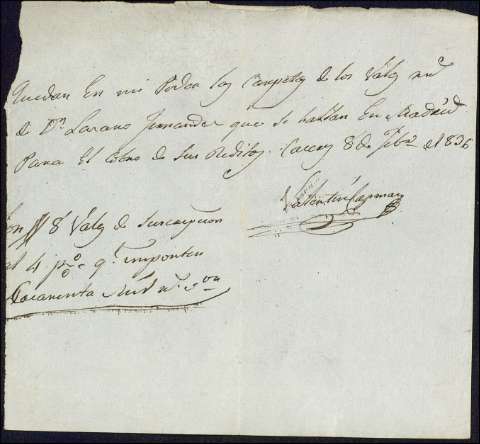 Quedan en mi Poder las Carpetas de los Vales
de Dn. Lázaro Fernandez que se hallan en Madrid
Para el Cobro de sus Reditos. 8 de Febo. de 1836
Valentin Capman
8 Vales de Suscripcion
al 4 p% qe. importan
mil rs. von